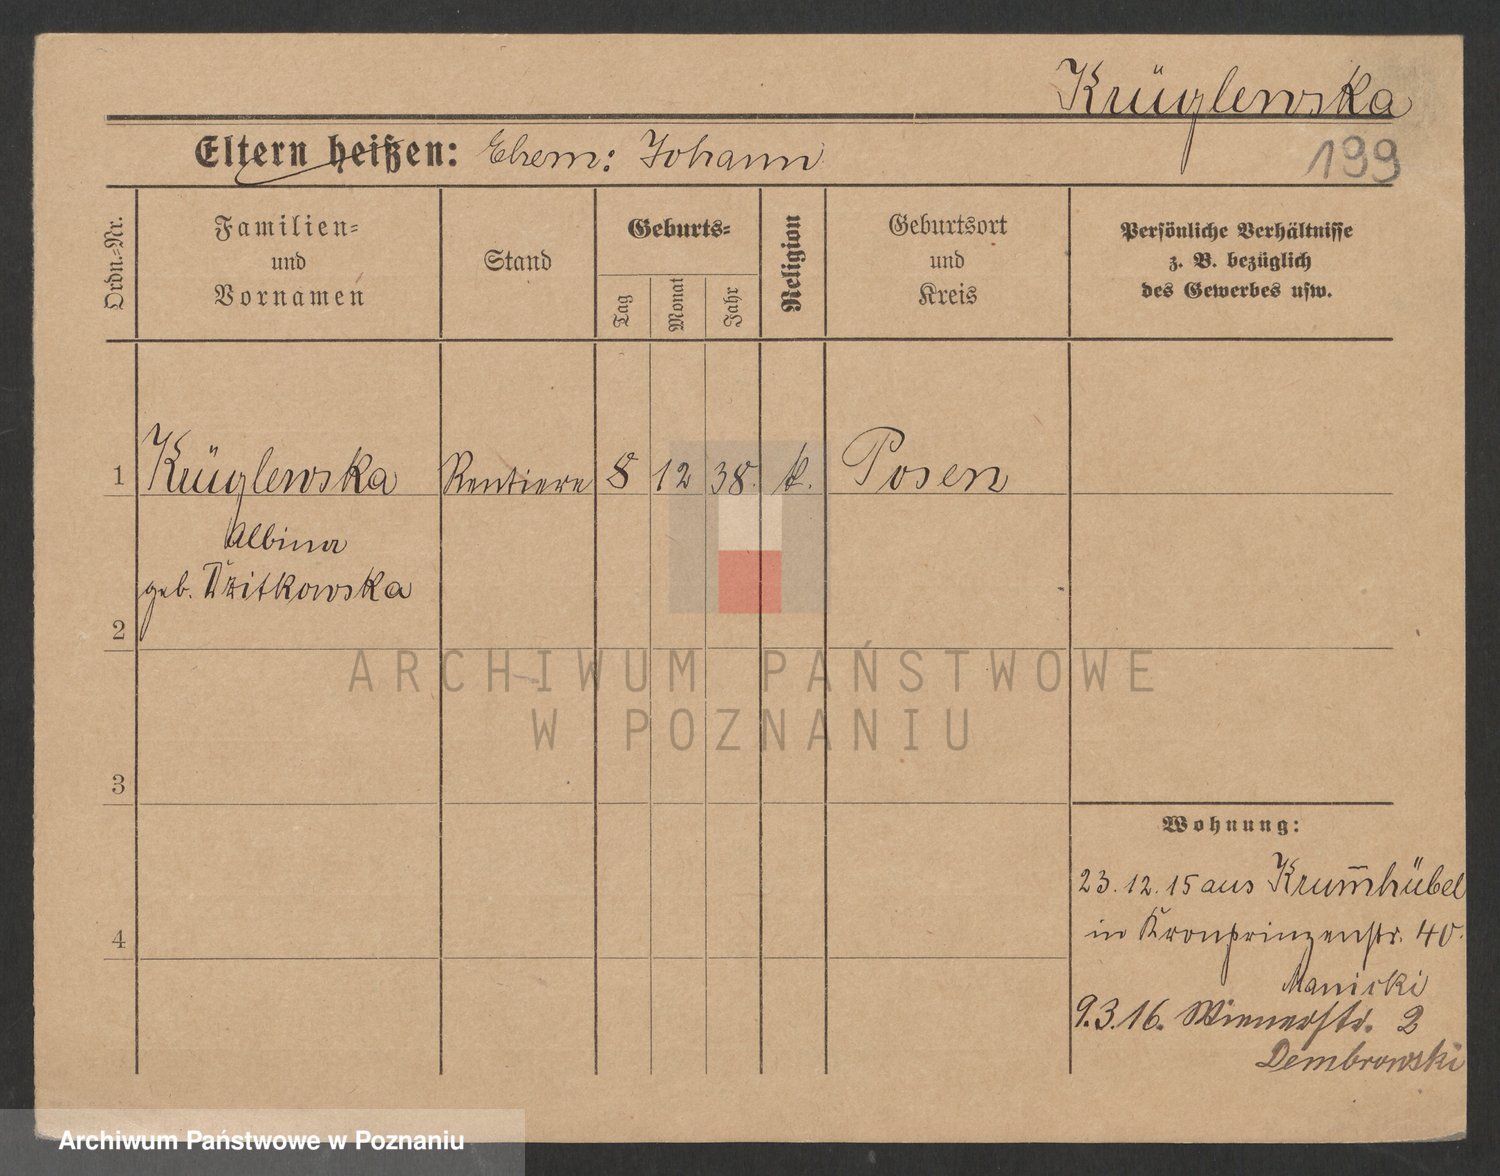 Krüglewska
199
Eltern heißen: Ehem: Johann
Ordn.=Nr.
Familien=
und
Vornamen
Stand
Geburts=
Tag
Monat
Jahr
Religion
Geburtsort
und
Kreis
Persönliche Verhältnisse
z. B. bezüglich
des Gewerbes usw.
1 Krüglewska Rentiere 8 12 38. k. Posen
Albina
geb. Witkowska
2
3
4
Wohnung:
23.12.15 aus Krum̅hübel
in Kronprinzenstr. 40.
Manicki
9.3.16. Wienerstr. 2
Dembrowski
ARCHIWUM PAŃSTWOWE
W POZNANIU
Archiwum Państwowe w Poznaniu